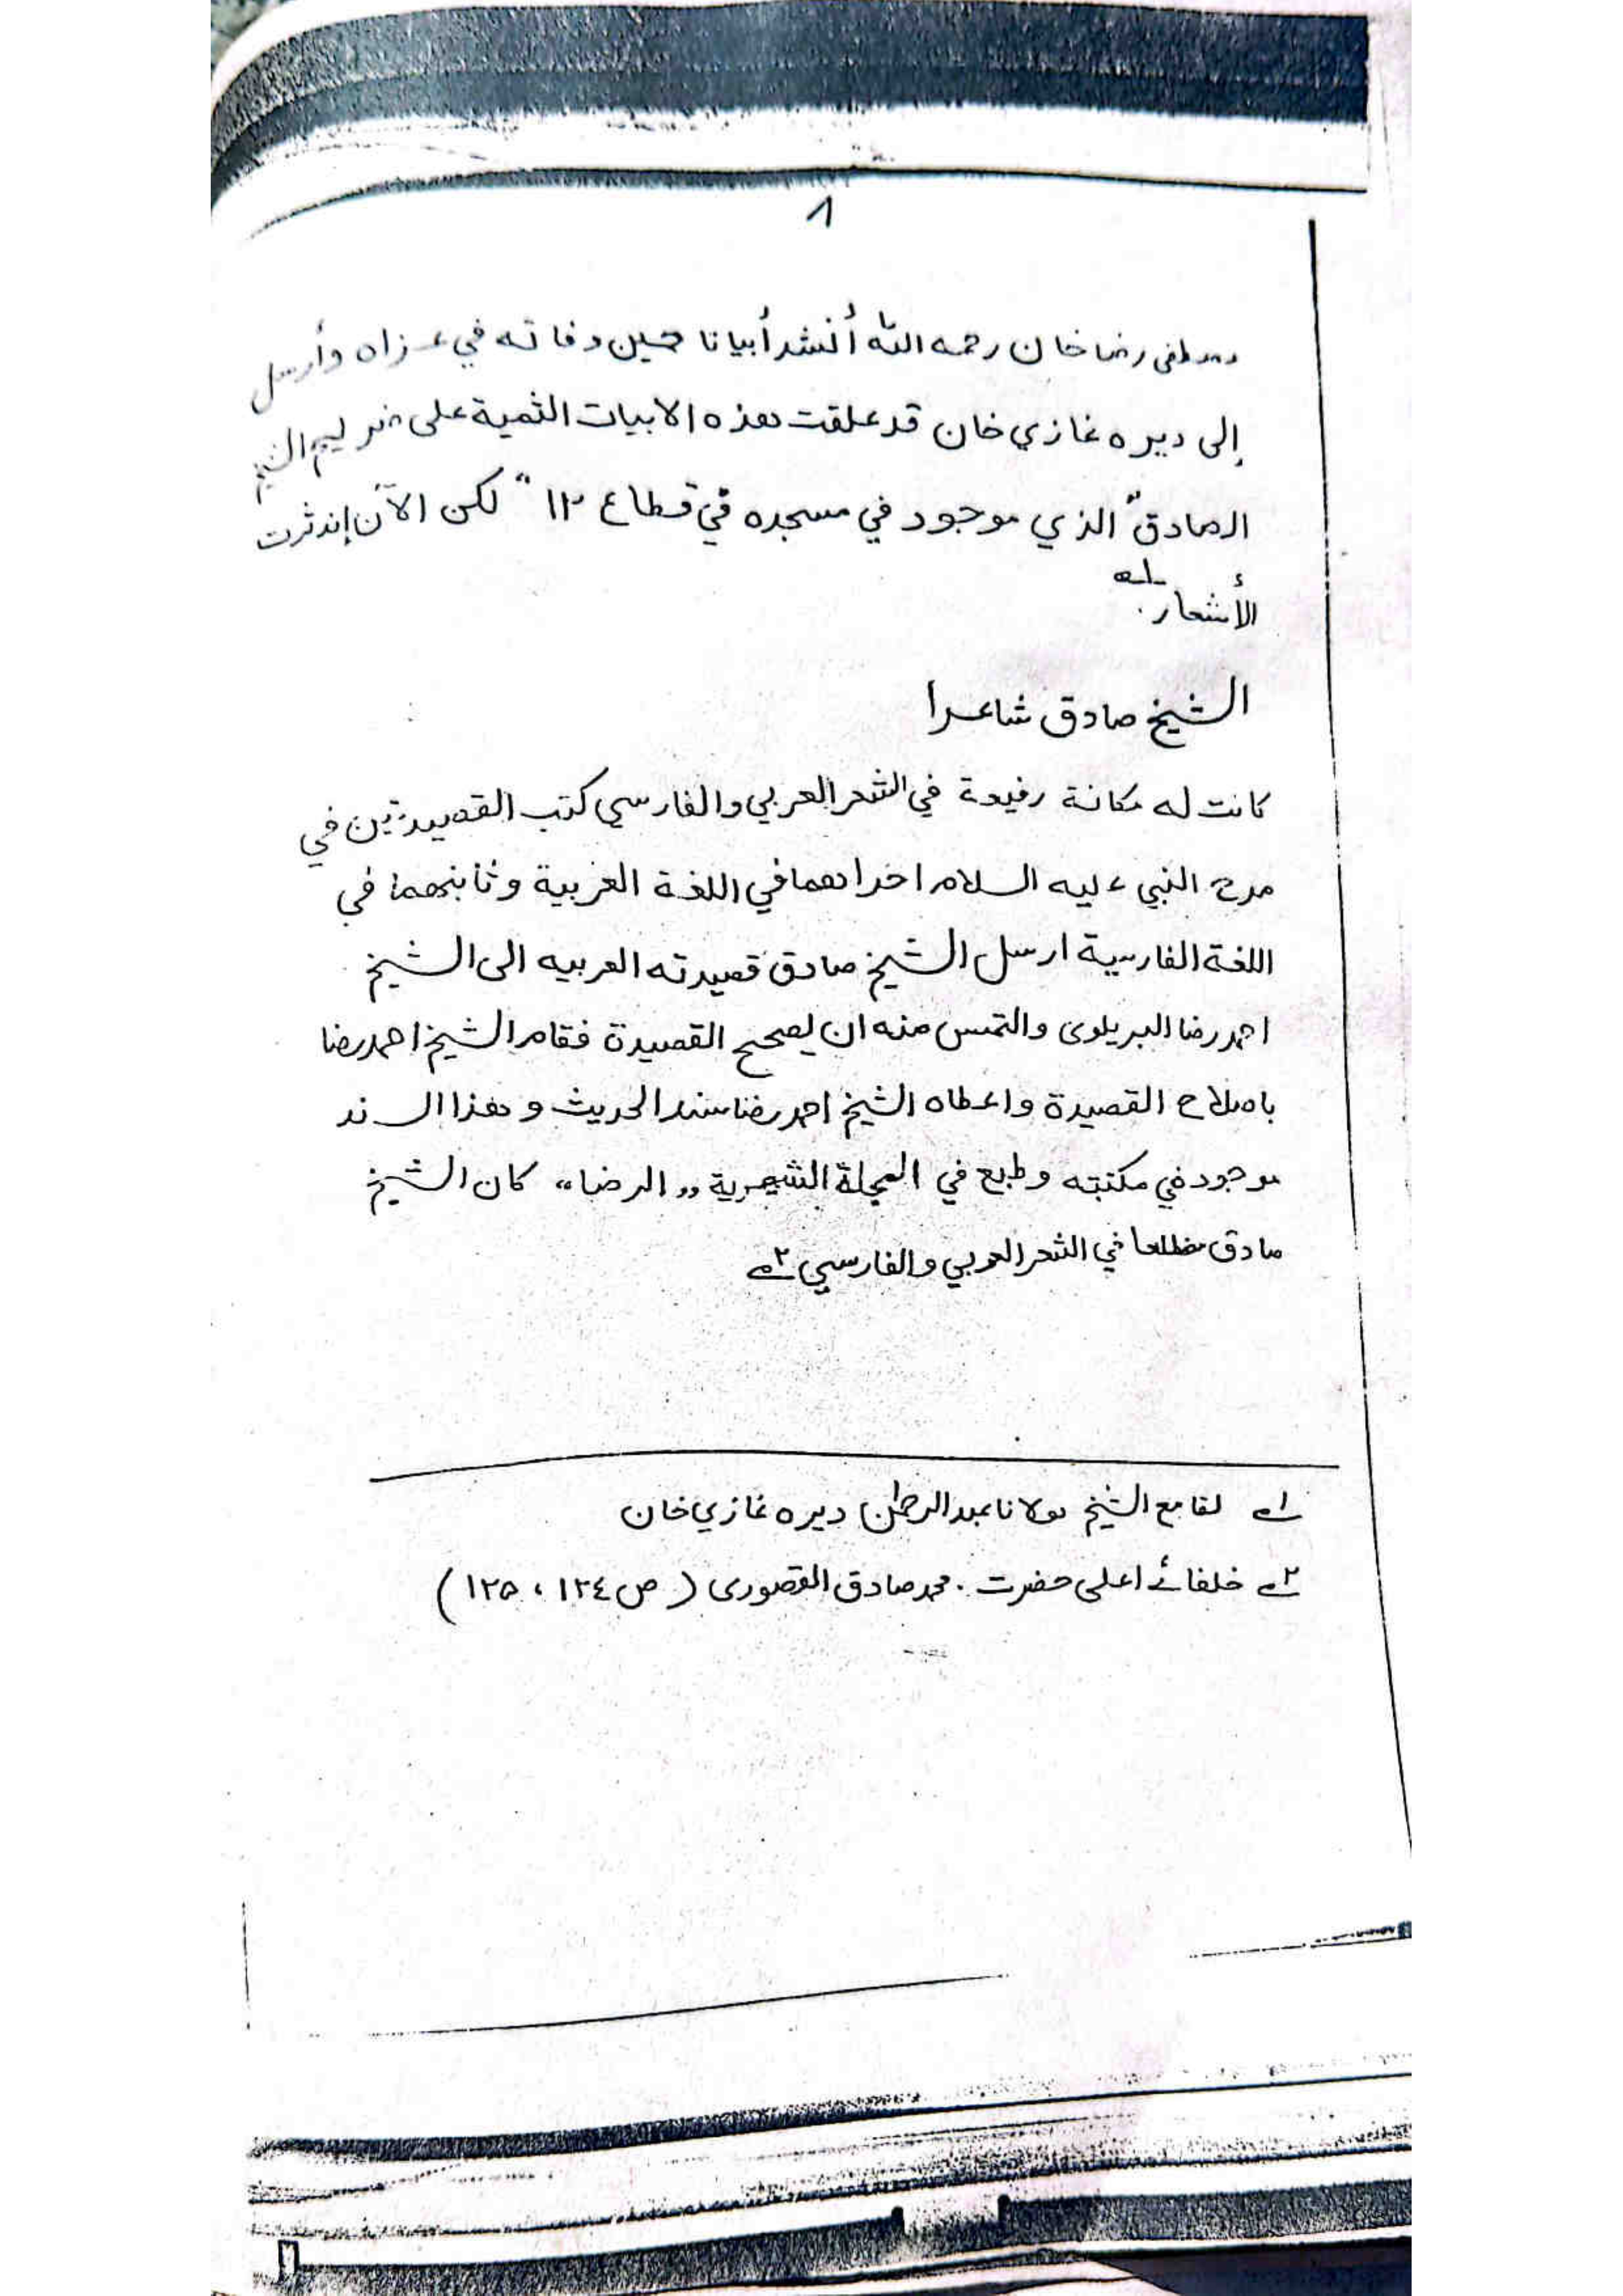 ٨
مصطفى رضا خان رحمه الله أنشد أبياتا حين وفاته في عزاه وأرسل
إلى ديره غازي خان قد علقت هذه الابيات الثمية على
الصادق" الذي موجود في مسجده في قطاع ١٢" لكن الآن إندثرت
الأشعار. ١ه
الشيخ صادق شاعرا
كانت له مكانة رفيعة في الشعر العربي والفارسي كتب القصيدتين في
مدح النبي عليه السلام احداهما في اللغة العربية وثانيهما في
اللغة الفارسية ارسل الشيخ صادق قصيدته العربيه الى الشيخ
احمد رضا البريلوى والتمس منه ان يصحح القصيدة فقام الشيخ احمد رضا
باصلاح القصيدة واعطاه الشيخ احمد رضا سند الحديث وهذا السند
موجود في مكتبته وطبع في المجلة الشهرية ,,الرضا،، كان الشيخ
صادق مطلعا في الشعر العربي والفارسي ٢ه
١ه لقا مع الشيخ مولانا عبد الرحمٰن ديره غازي خان
٢ه خلفائے اعلى حضرت . محمد صادق القصورى (ص ١٢٤ ، ١٢٥)